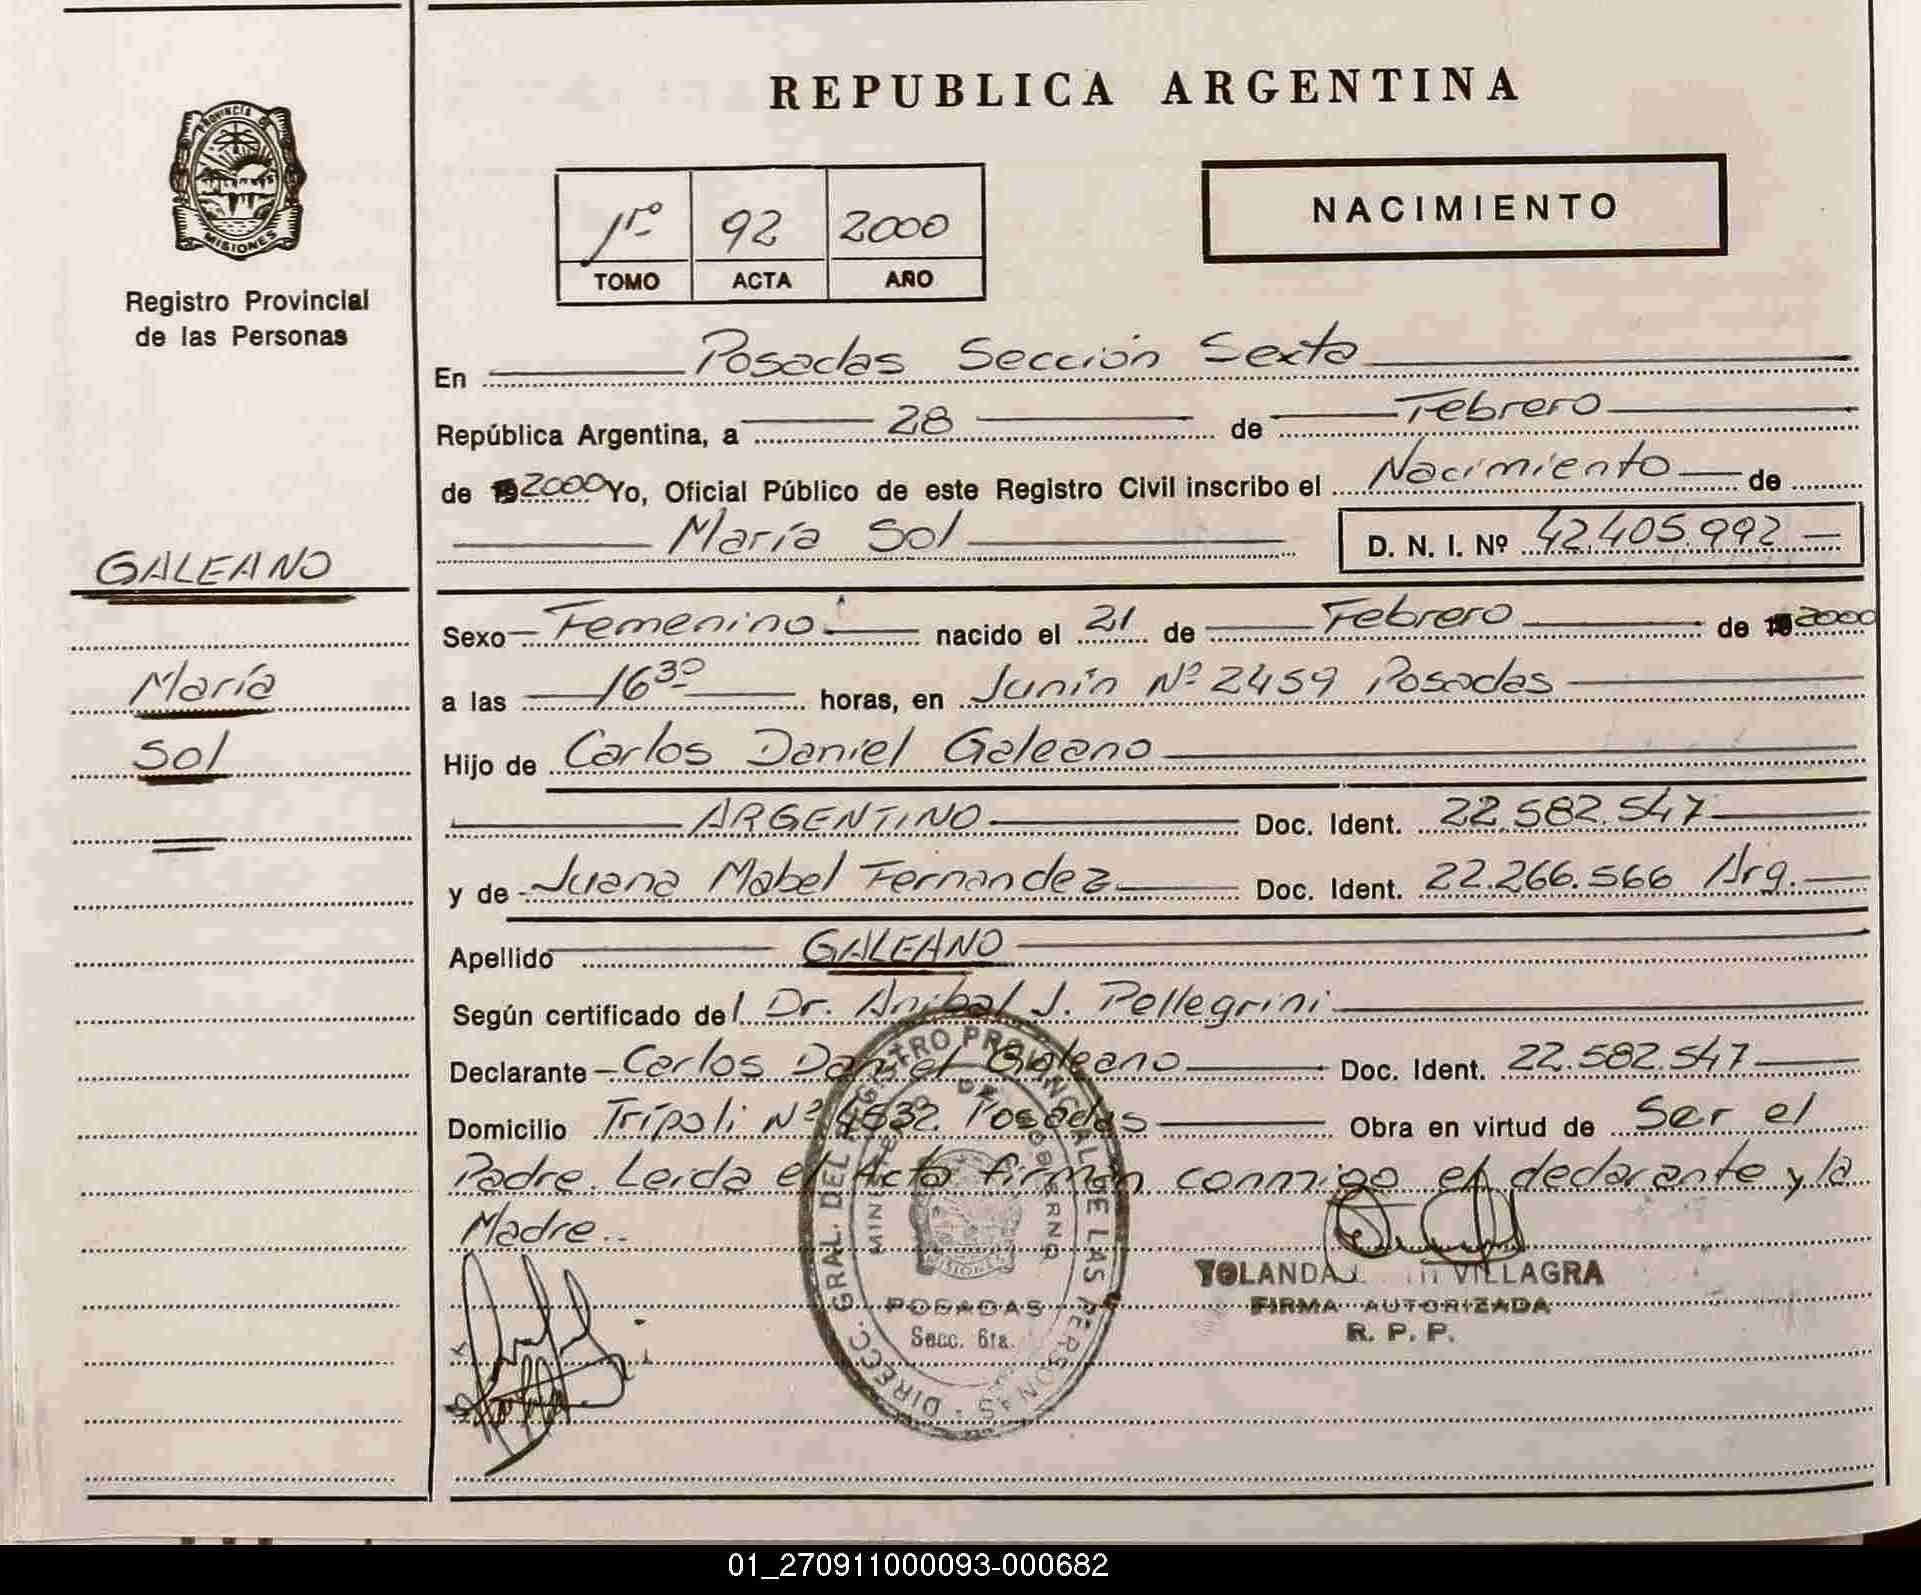 REPUBLICA ARGENTINA
PROVINCIA DE
MISIONES
Registro Provincial
de las Personas
1º 92 2000
TOMO ACTA AÑO
NACIMIENTO
En Posadas Sección Sexta
República Argentina, a 28 de Febrero
de 2000 Yo, Oficial Público de este Registro Civil inscribo el Nacimiento de
María Sol D. N. I. Nº 42.405.992
GALEANO
María
Sol
Sexo Femenino nacido el 21 de Febrero de 2000
a las 16 30 horas, en Junín Nº 2459 Posadas
Hijo de Carlos Daniel Galeano
ARGENTINO Doc. Ident. 22.582.547
y de Juana Mabel Fernandez Doc. Ident. 22.266.566 Arg.
Apellido GALEANO
Según certificado del Dr. Aníbal J. Pellegrini
Declarante Carlos Daniel Galeano Doc. Ident. 22.582.547
Domicilio Trípoli Nº 4532 Posadas Obra en virtud de Ser el
Padre. Leída el Acta firman conmigo el declarante y la
Madre..
DIRECC. GRAL. DEL REGISTRO PROVINCIAL DE LAS PERSONAS
MINISTERIO DE GOBIERNO
MISIONES
POSADAS
Secc. 6ta.
YOLANDA VILLAGRA
FIRMA AUTORIZADA
R. P. P.
01_270911000093-000682